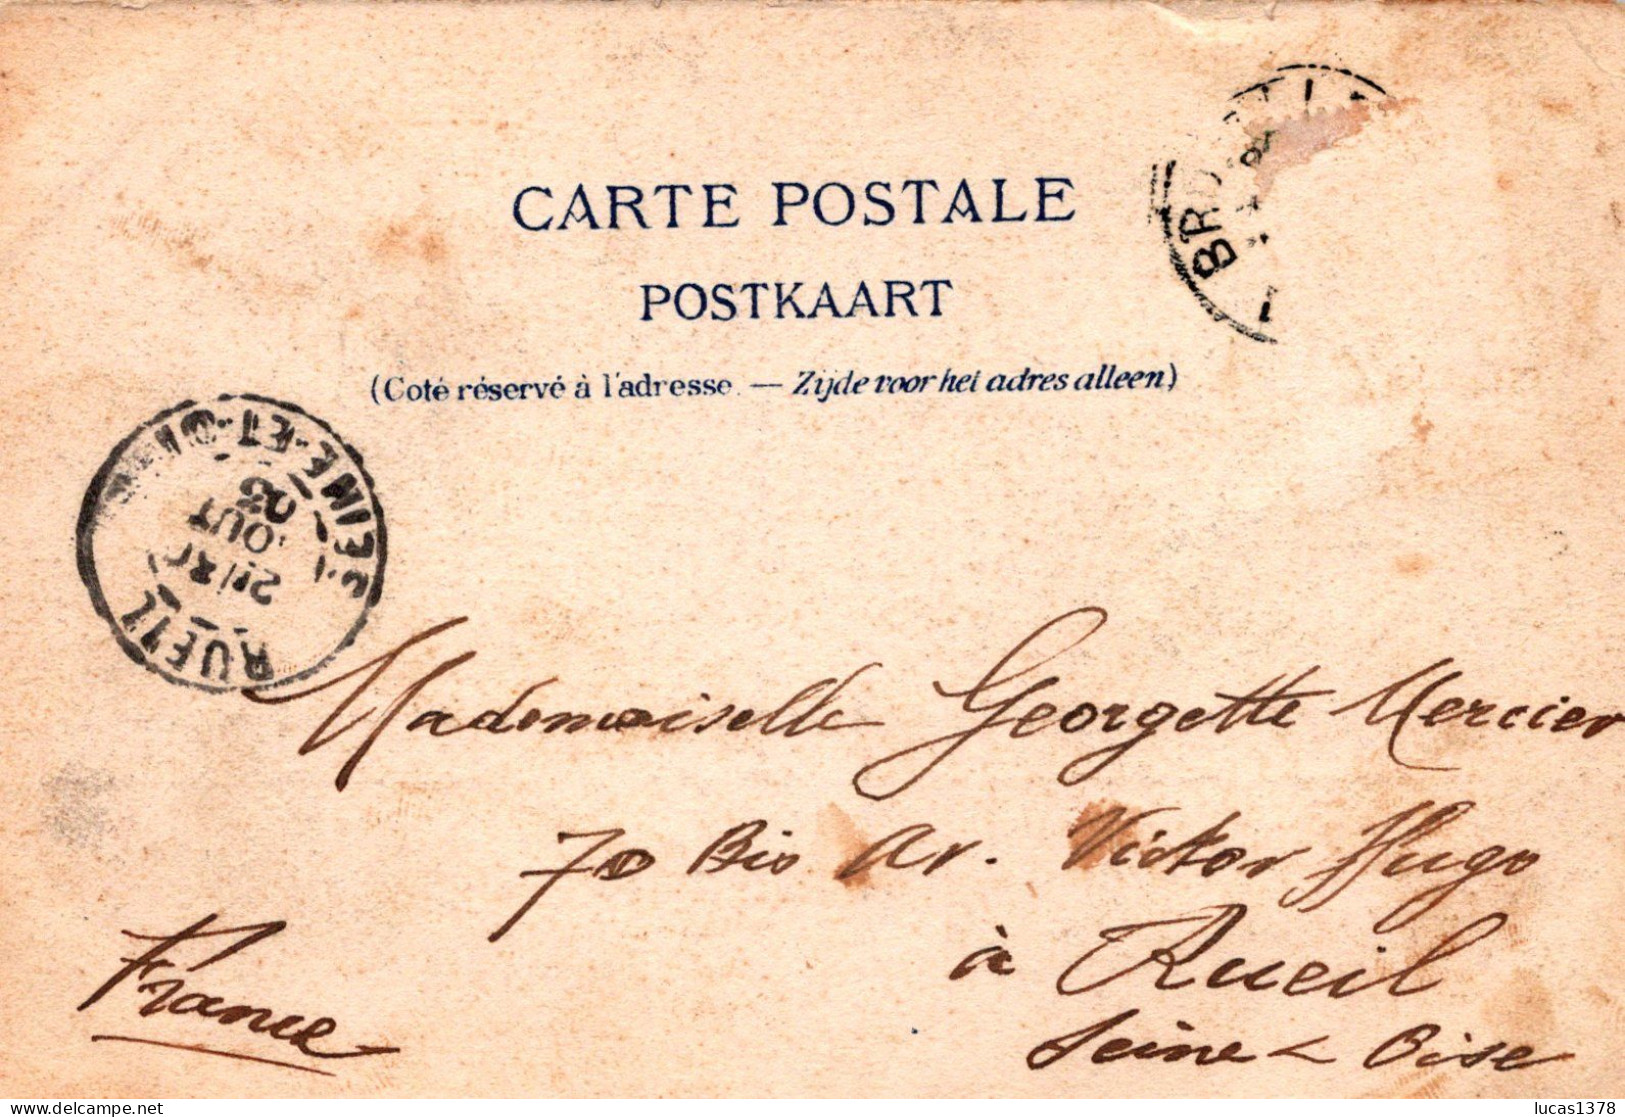 CARTE POSTALE
POSTKAART
(Coté réservé à l'adresse. — Zijde voor het adres alleen)
RUEIL
SEINE-ET-OISE
OUT
03
Mademoiselle Georgette Mercier
70 Bis Av. Victor Hugo
à Rueil
Seine & Oise
France
lucas1378